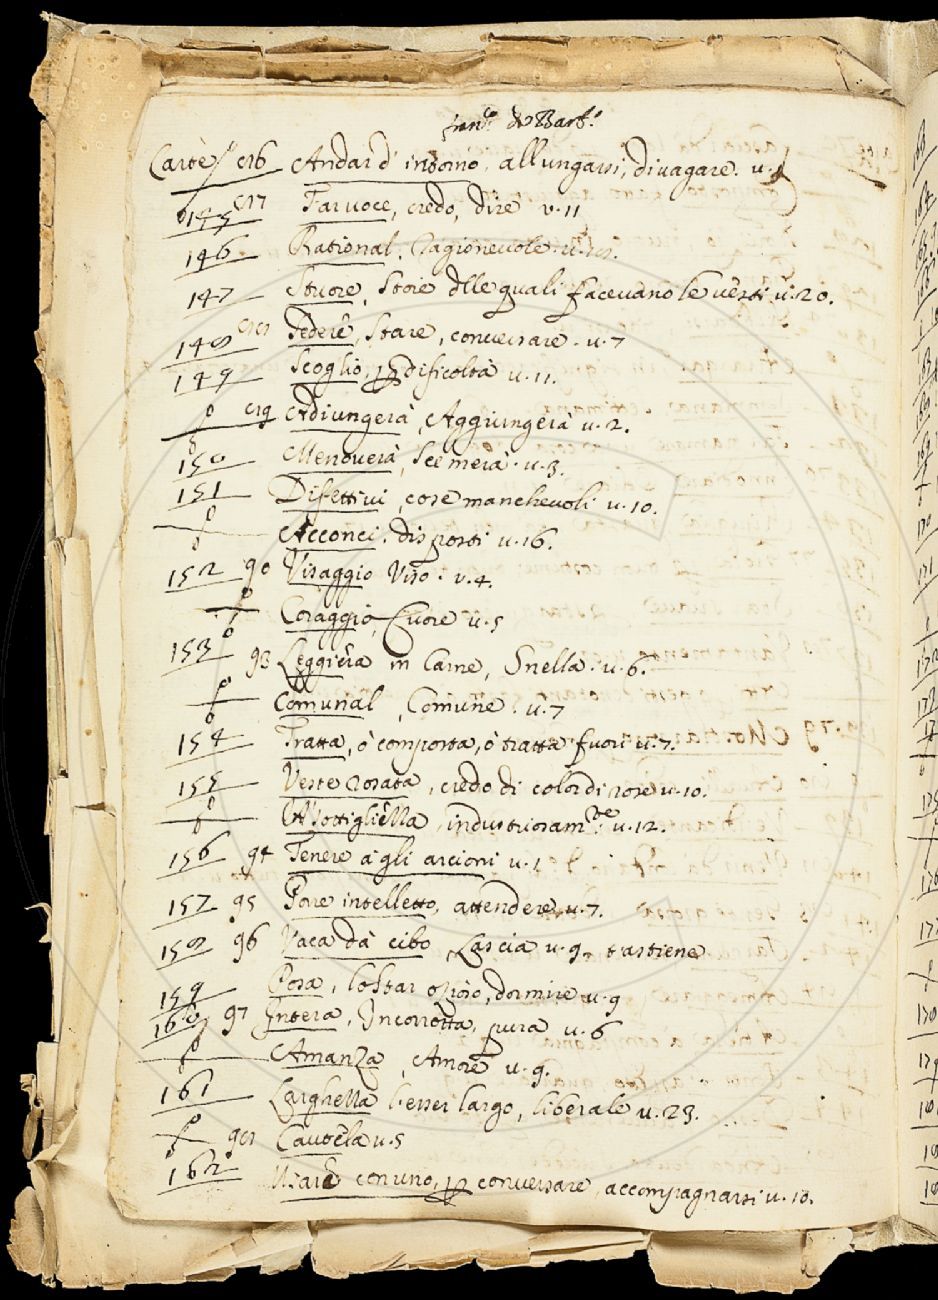 franc.º da Barb.º
Carte / 86 Andar d'intorno, allungarsi, divagare. u.
145 87 Far voce, credo, dire v. 11
146 Rational. Ragionevole. u.
147 Stuore, Stoie dlle quali facevano le vesti u. 20.
148 88 Sedere, Stare, conversare. u. 7
149 Scoglio, p dificoltà u. 11.
89 Adiungerà, Aggiungerà u. 2.
150 Menoverà, Scemerà. u. 3.
151 Difettivi, cose manchevoli u. 10.
Acconci. disposti u. 16.
152 90 Visaggio Viso. v. 4.
Coraggio, Cuore u. 5
153 93 Leggiera in Carne, Snella. u. 6.
Comunal, Comune. u. 7
154 Tratta, ò comporta, ò tratta fuori u. 7.
155 Veste rosata, credo di color di rose u. 10.
Assottigliella, industriosam.te u. 12.
156 94 Tenere a gli arcioni u. 1
157 95 Pone intelletto, attendere u. 7.
158 96 Vaca dà cibo, Lascia u. 9, s'astiene
159 Posa, lo star ozioso, dormire u. 9
160 97 Intera, Incorrotta, pura u. 6
Amanza, Amore u. 9.
161 Larghella l'esser largo, liberale u. 23.
98 Cautela u. 5
162 Usare con uno, p conversare, accompagnarsi u. 10.